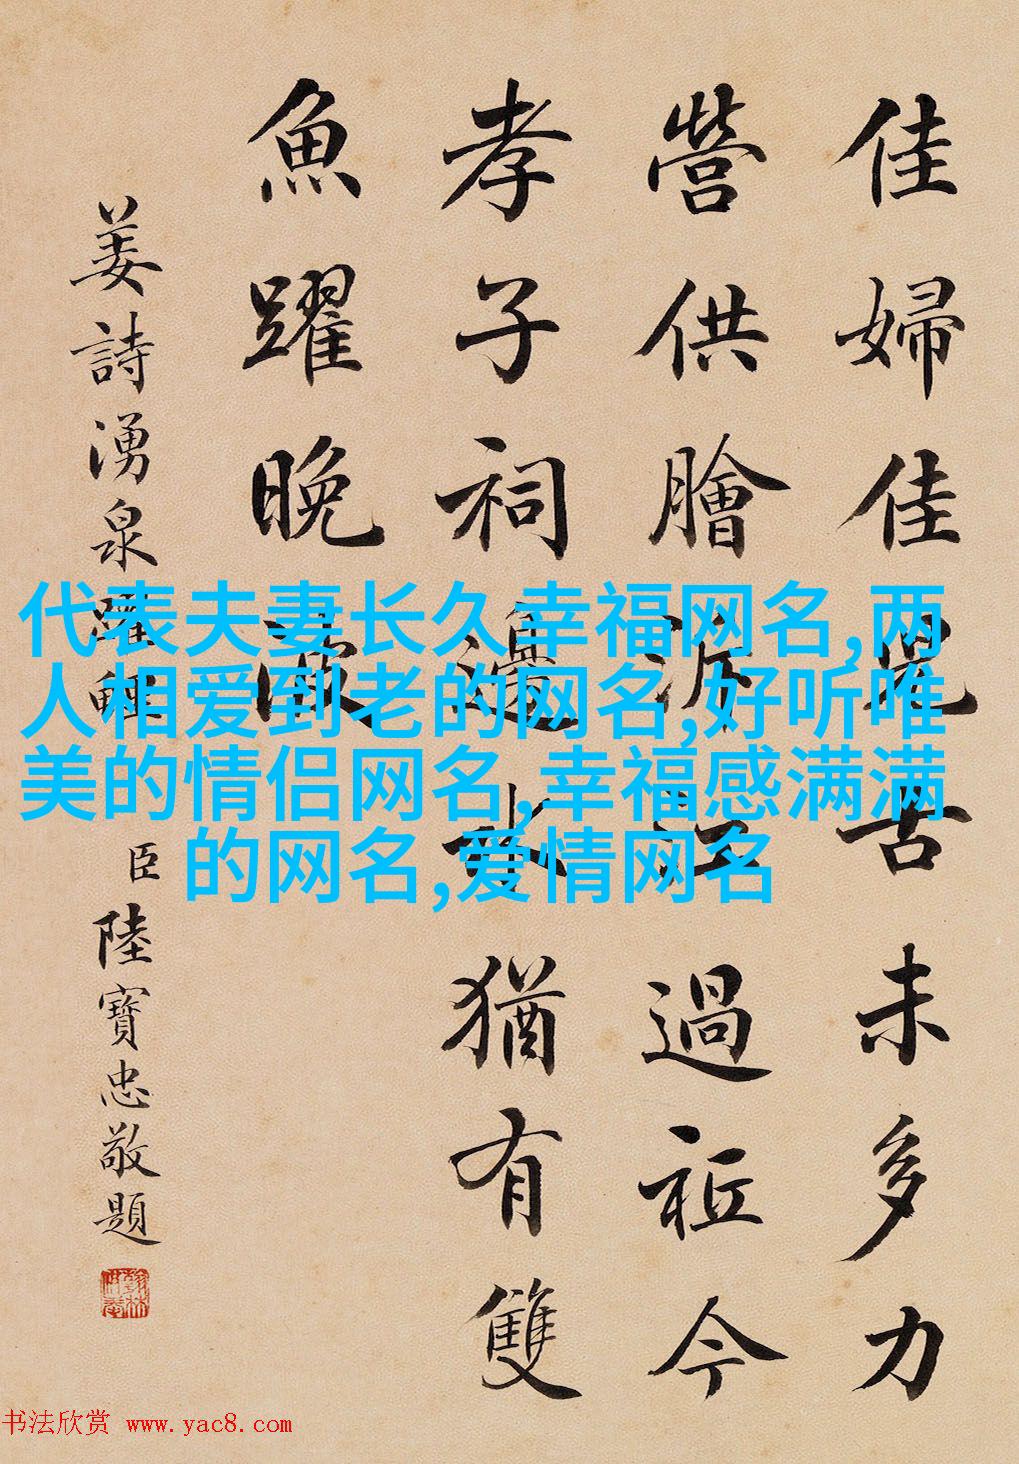 佳婦佳兒古未多力
營供膾泝江過祇今
孝子祠邊水猶有雙
魚躍晚波
姜詩湧泉躍鯉
臣陸寶忠敬題
代表夫妻长久幸福网名,两
人相爱到老的网名,好听唯
美的情侣网名,幸福感满满
的网名,爱情网名
书法欣赏 www.yac8.com